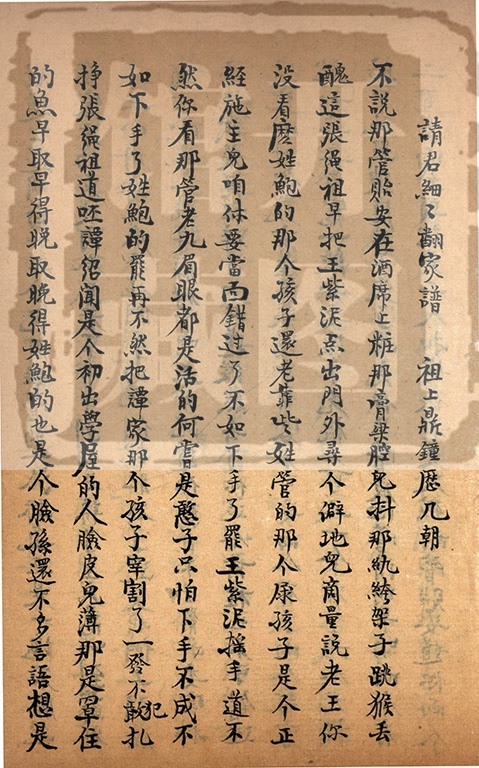 請君細〻翻家譜　祖上鼎鐘歷几朝
不說那管貽安在酒席上粧那膏粱腔兒抖那紈絝架子跳猴丢
醜這張繩祖早把王紫泥点出門外尋个僻地兒商量說老王你
没看庅姓鮑的那个孩子還老靠些姓管的那个尿孩子是个正
經施主兒咱休要當面錯過了不如下手了罷王紫泥摇手道不
然你看那管老九眉眼都是活的何嘗是憨子只怕下手不成不
如下手了姓鮑的罷再不然把譚家那个孩子宰割了一發不敢犯扎
挣張繩祖道呸譚紹聞是个初出學屋的人臉皮兒薄那是罩住
的魚早取早得晚取晚得姓鮑的也是个臉孫還不多言語想是